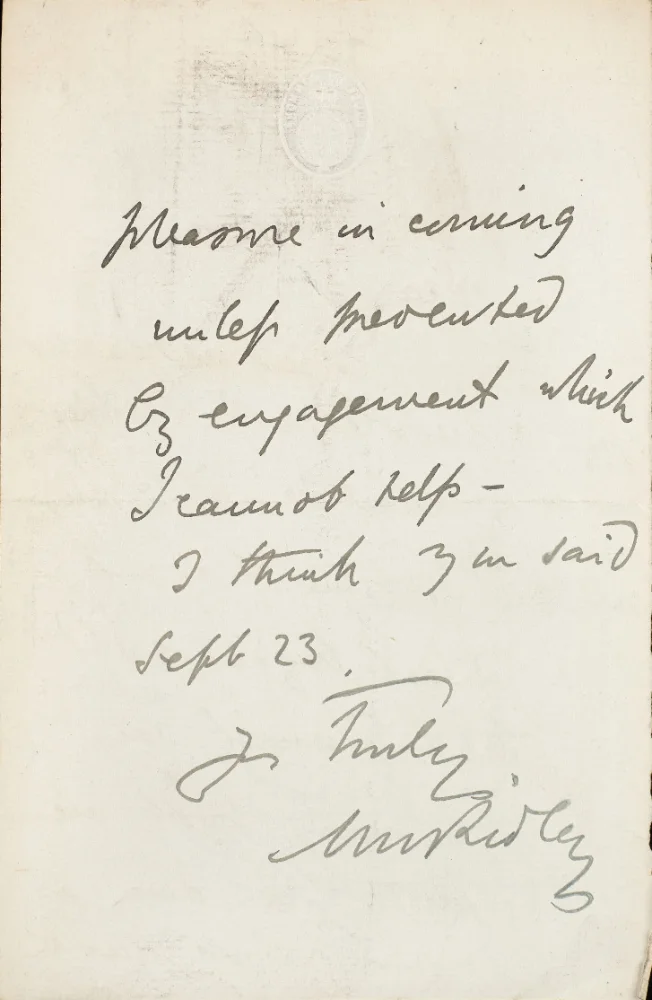 pleasure in coming
unless prevented
by engagement which
I cannot help -
I think you said
Sept 23.
Yrs Truly
MWRidley